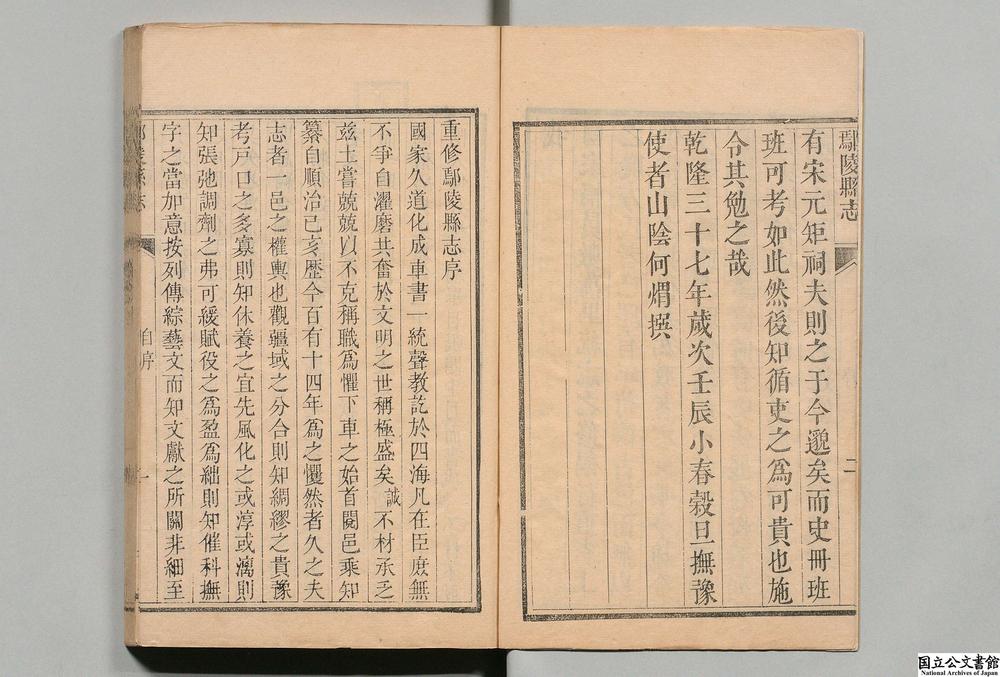 鄢陵縣志
二
有宋元矩祠夫則之于今邈矣而史冊班
班可考如此然後知循吏之為可貴也施
令其勉之哉
乾隆三十七年歲次壬辰小春穀旦撫豫
使者山陰何煟撰
重修鄢陵縣志序
國家久道化成車書一統聲教訖於四海凡在臣庶無
不爭自濯磨共奮於文明之世稱極盛矣誠不材承乏
茲土嘗兢兢以不克稱職為懼下車之始首閱邑乘知
纂自順治己亥歷今百有十四年為之戄然者久之夫
志者一邑之權輿也觀疆域之分合則知綢繆之貴豫
考戸口之多寡則知休養之宜先風化之或淳或漓則
知張弛調劑之弗可緩賦役之為盈為絀則知催科撫
字之當加意按列傳綜藝文而知文獻之所關非細至
自序
一
国立公文書館
National Archives of Japan